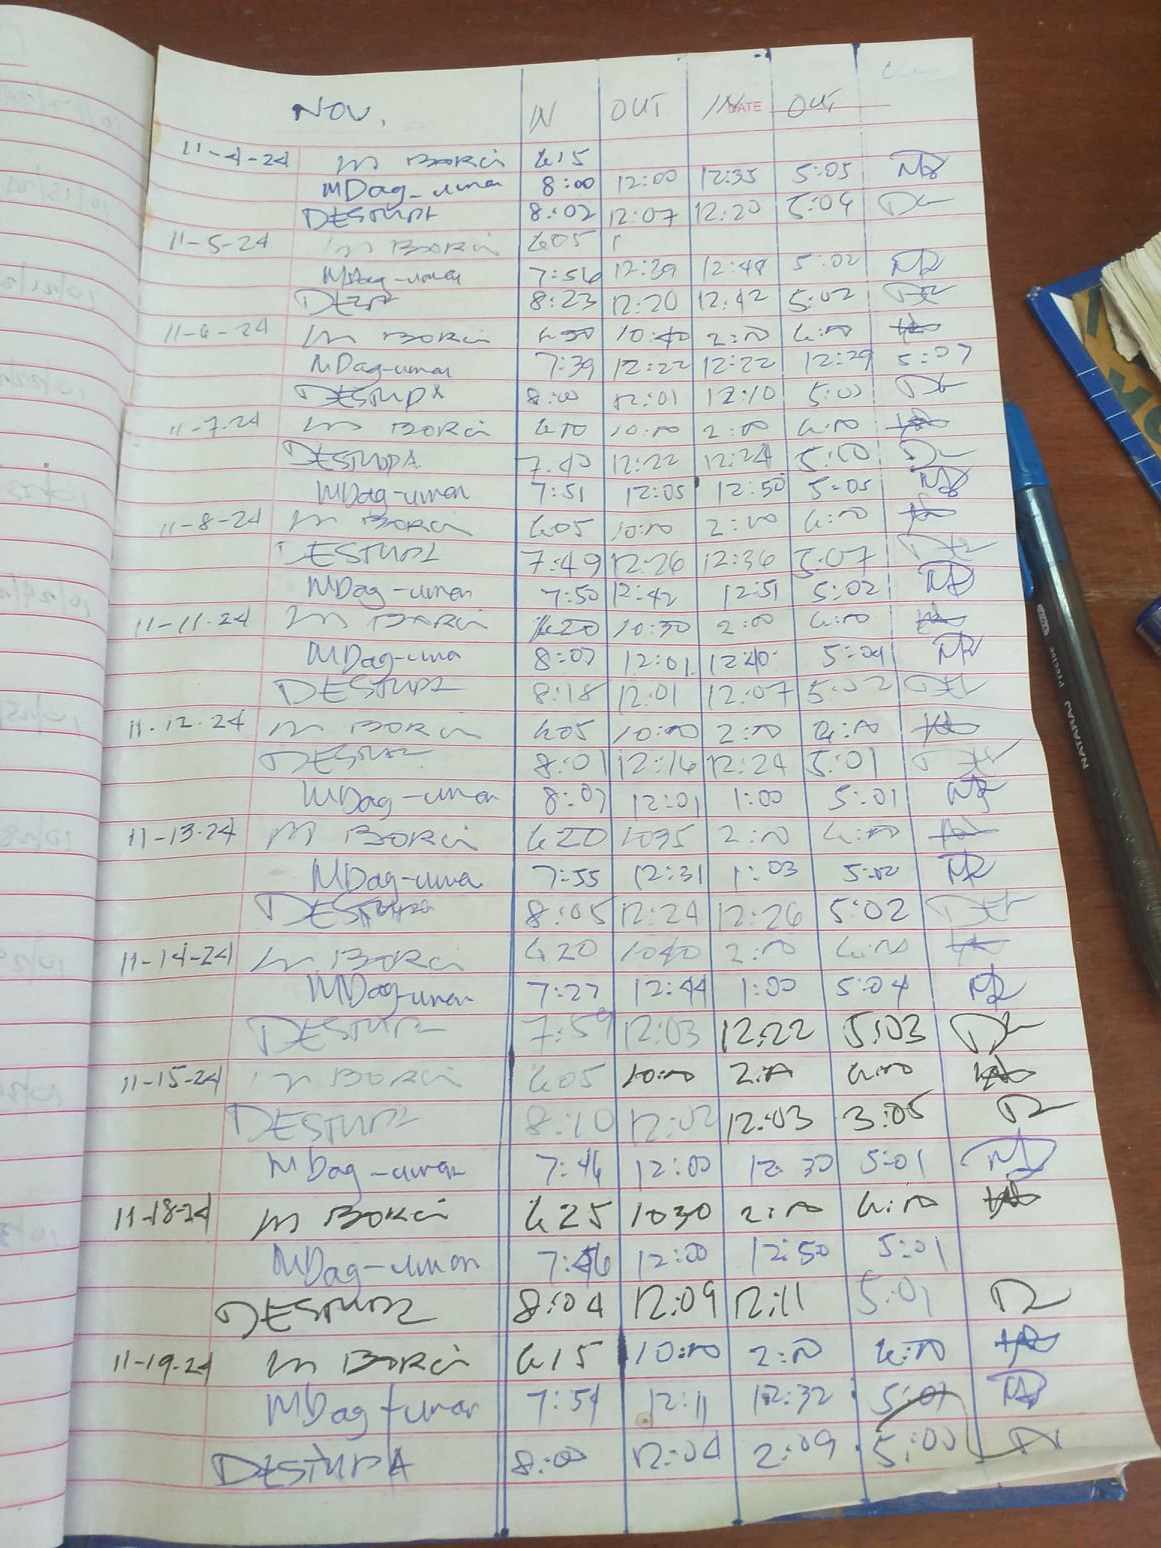 NOV. IN OUT IN DATE OUT
11-4-24 M BORCI 6:15
MDag-uman 8:00 12:00 12:35 5:05
DESTUPA 8:02 12:07 12:20 5:04
11-5-24 M BORCI 605
MDag-uman 7:56 12:39 12:48 5:02
8:23 12:20 12:42 5:02
11-6-24 M BORCI 630 10:40 2:00 6:00
MDag-uman 7:39 12:22 12:22 12:29 5:07
DESTUPA 8:00 12:01 12:10 5:00
11-7-24 M BORCI 6:00 10:00 2:00 6:00
DESTUPA 7:40 12:22 12:24 5:00
MDag-uman 7:51 12:05 12:50 5:05
11-8-24 M BORCI 605 10:00 2:00 6:00
DESTUPA 7:49 12:26 12:36 5:07
MDag-uman 7:50 12:42 12:51 5:02
11-11-24 M BORCI 620 10:30 2:00 6:00
MDag-uma 8:07 12:01 12:40 5:04
DESTUPA 8:18 12:01 12:07 5:02
11-12-24 M BORCI 605 10:00 2:00 6:00
DESTUPA 8:01 12:16 12:24 5:01
MDag-uman 8:07 12:01 1:00 5:01
11-13-24 M BORCI 620 1035 2:00 6:00
MDag-uman 7:55 12:31 1:03 5:00
DESTUPA 8:05 12:24 12:26 5:02
11-14-24 M BORCI 620 1040 2:00 6:00
MDag-uman 7:27 12:44 1:00 5:04
DESTUPA 7:59 12:03 12:22 5:03
11-15-24 M BORCI 605 10:00 2:00 6:00
DESTUPA 8:10 12:02 12:03 3:05
MDag-uman 7:46 12:00 12:30 5:01
11-18-24 M BORCI 625 1030 2:00 6:00
MDag-uman 7:46 12:00 12:50 5:01
DESTUPA 8:04 12:09 12:11 5:01
11-19-24 M BORCI 615 10:00 2:00 6:00
MDag-uman 7:54 12:11 12:32 5:01
DESTUPA 8:00 12:04 2:09 5:00
NATARAJ